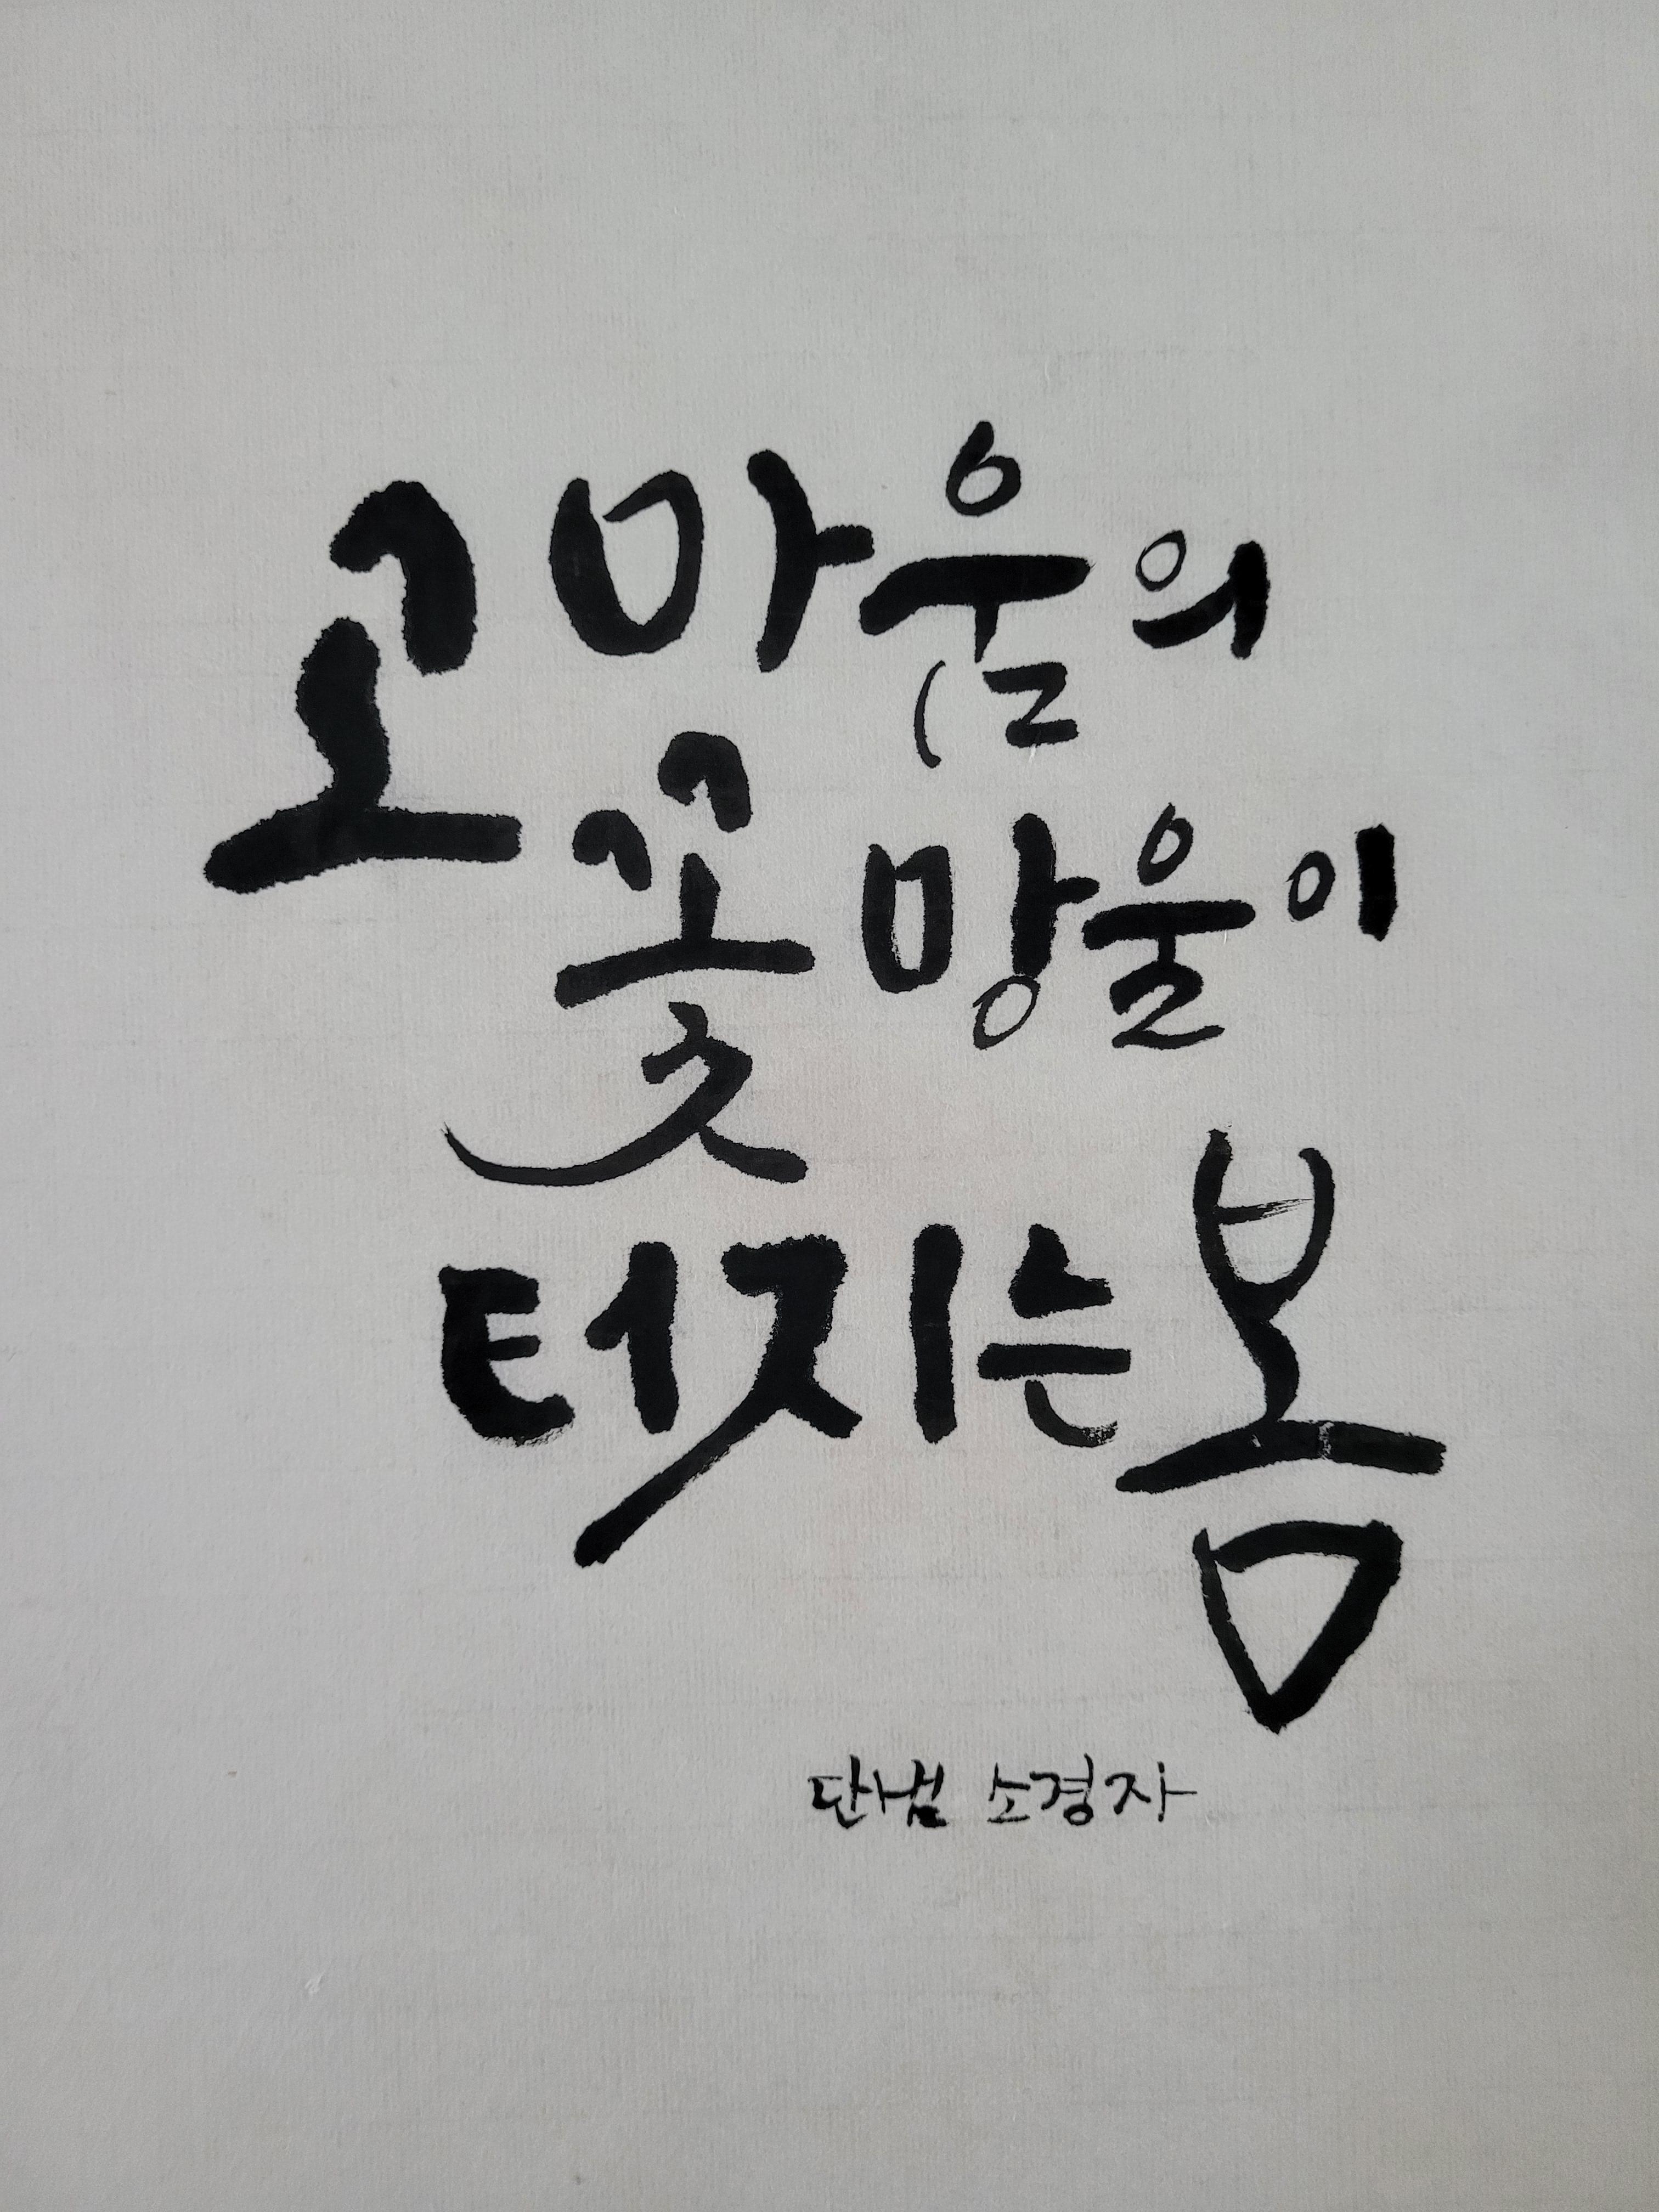 고마움의
꽃망울이
터지는 봄
단샘 소경자